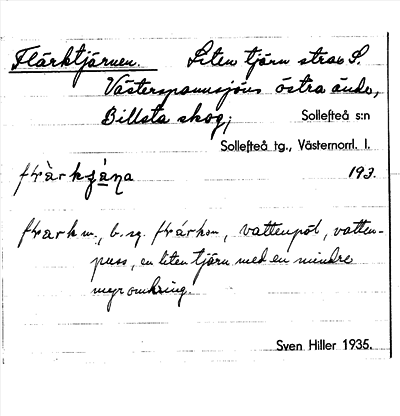 Flärktjärnen. Liten tjärn strax S.
Västerspannsjöns östra ände,
Billsta skog;
Sollefteå s:n
Sollefteå tg., Västernorrl. l.
193.
flark m., b. sg. flárkən, vattenpöl, vatten-
puss, en liten tjärn med en mindre
myr omkring.
Sven Hiller 1935.